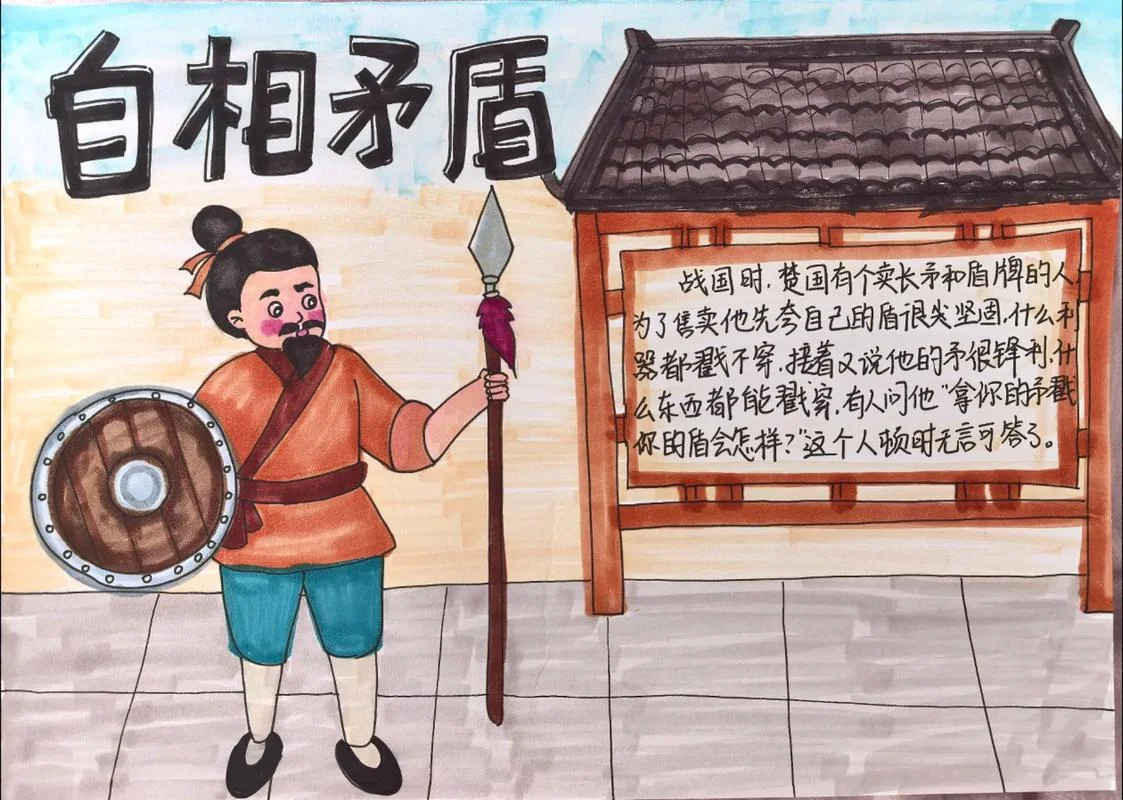 自相矛盾
战国时,楚国有个卖长矛和盾牌的人
为了售卖他先夸自己的盾很尖坚固,什么利
器都戳不穿,接着又说他的矛很锋利,什
么东西都能戳穿,有人问他“拿你的矛戳
你的盾会怎样?”这个人顿时无言可答了。